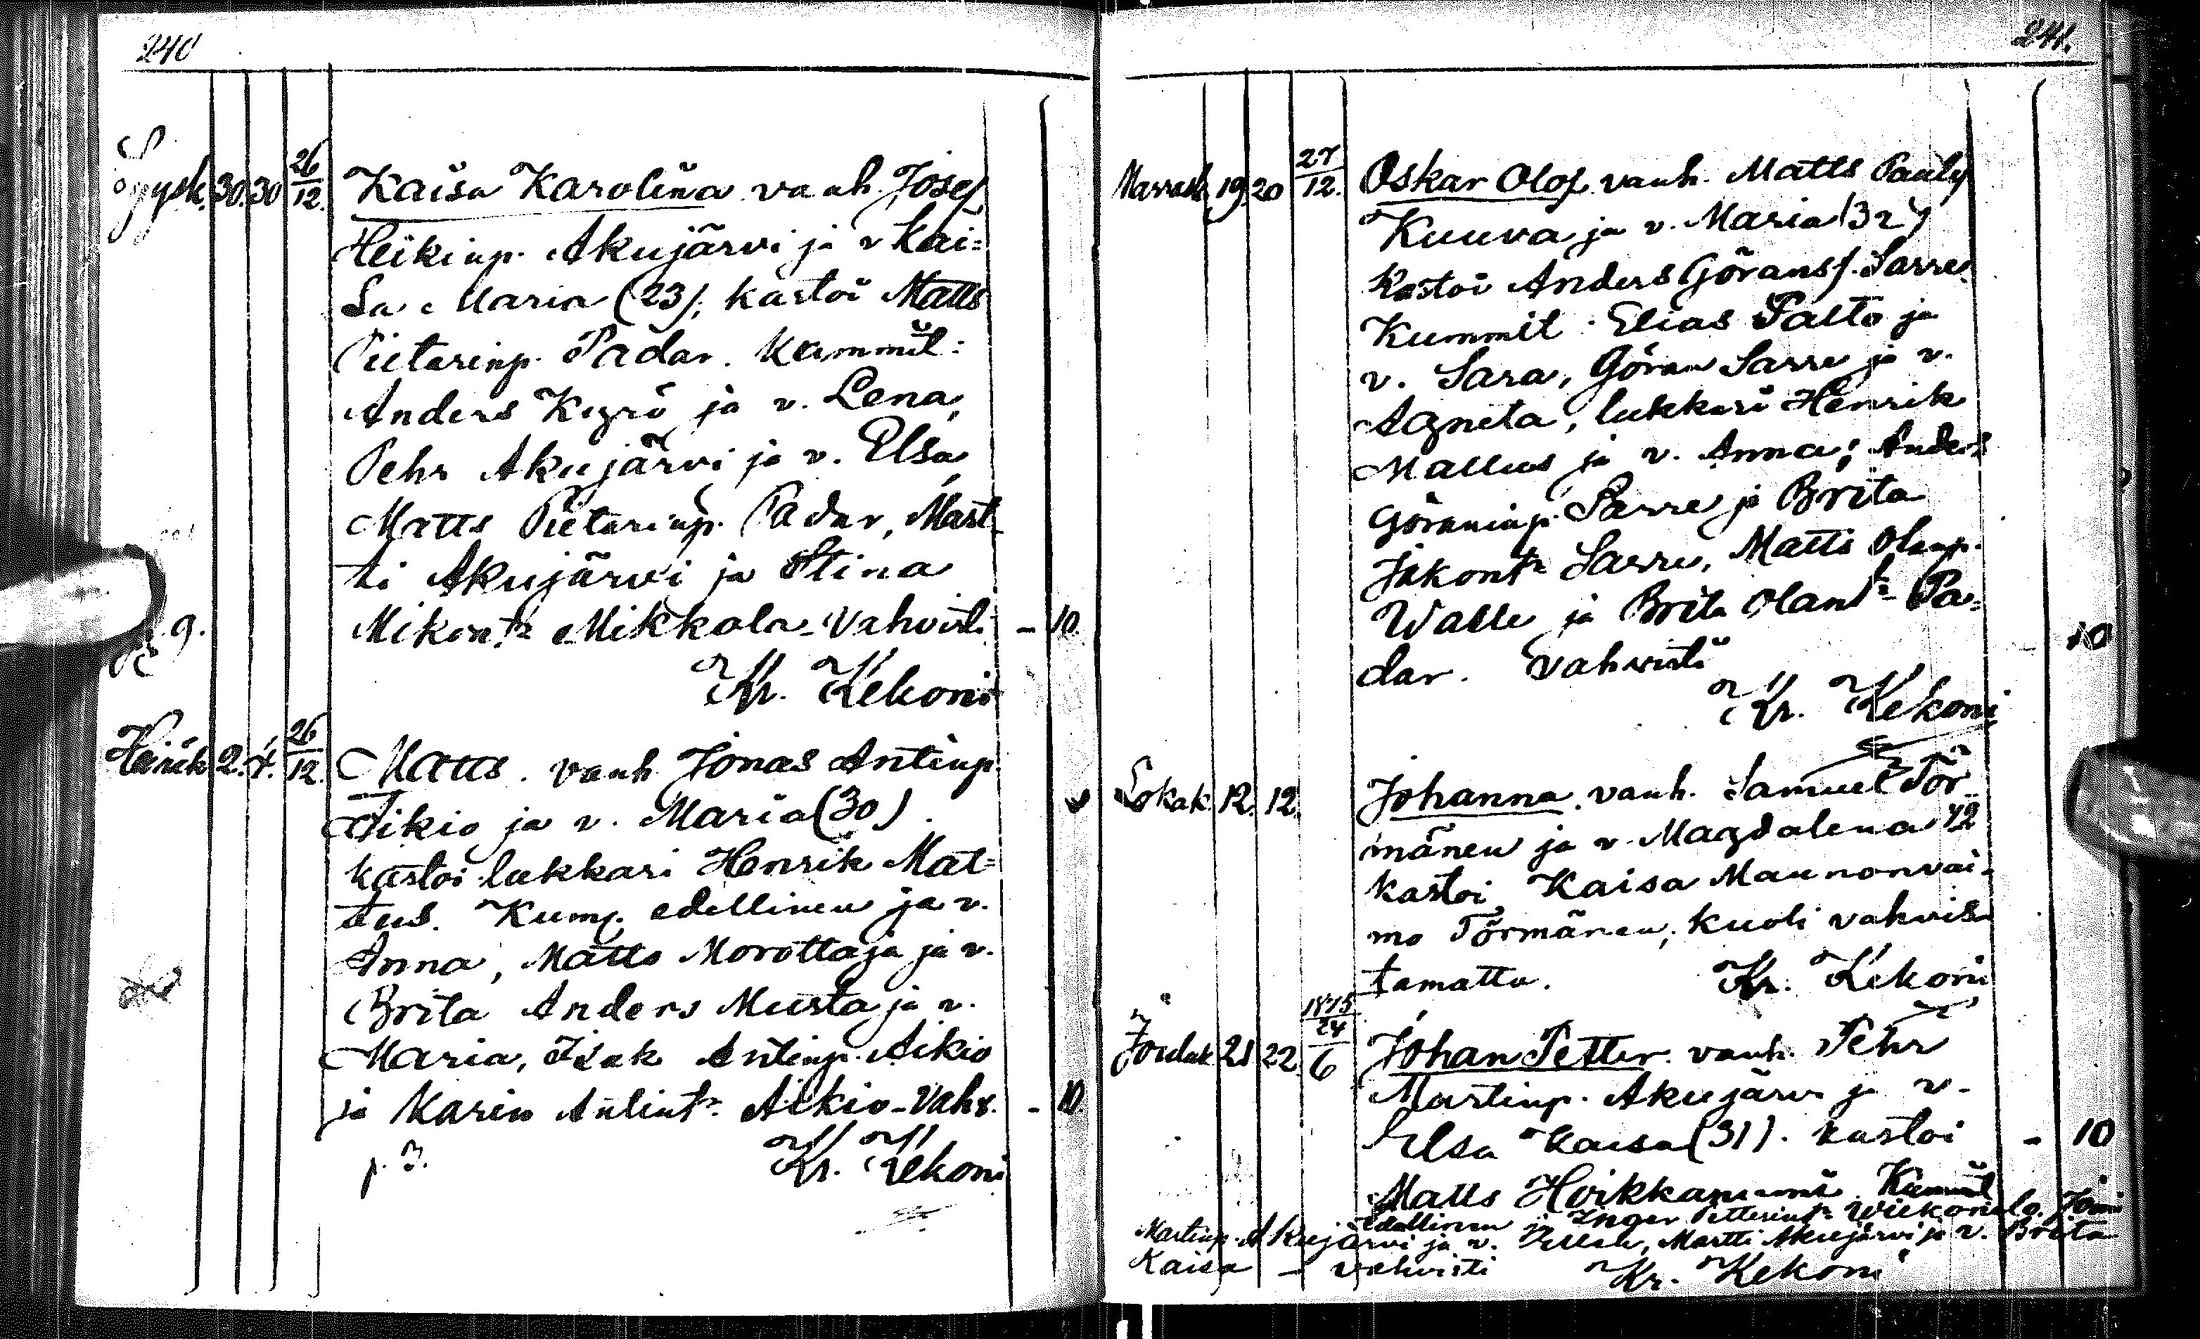 240
Syysk. 30. 30 26/12. Kaisa Karolina vanh. Josef
Heikinp. Akujärvi ja v Kai=
sa Maria (23); kastoi Matts
Pietarinp. Padar. Kummit:
Anders Kyrö ja v. Lena,
Pehr Akujärvi ja v. Elsa,
Matts Pietarinp. Padar, Mart-
ti Akujärvi ja Stina
Mikont:r Mikkola - Vahvisti - 10.
Kr. Kekoni
Heinäk 2. 4. 26/12. Matts. vanh. Jonas Antinp.
Aikio ja v. Maria (30).
kastoi lukkari Henrik Mat=
teus. Kumm. edellinen ja v.
Anna, Matts Morottaja ja v.
Brita Anders Musta ja v.
Maria, Isak Antinp. Aikio
ja Karin Antint:r Aikio - Vahv. - 10
p. 3. Kr. Kekoni
241.
Marrask. 19 20 27/12. Oskar Olof vanh. Matts Paulp
Kuuva ja v. Maria (32)
Kastoi Anders Göranss. Sarre.
Kummit: Elias Palto ja
v. Sara, Göran Sarre ja v.
Agneta, lukkari Henrik
Matteus ja v. Anna; Anders
Göraninp. Sarre ja Brita
Jakont:r Sarre, Matts Olanp.
Walle ja Brita Olant:r Pa=
dar. Vahvisti 10
Kr. Kekoni
Lokak. 12. 12. Johanna. vanh. Samuel Tör-
mänen ja v. Magdalena 42
kastoi Kaisa Maunonvai-
mo Törmänen; kuoli vahvis
tamatta. Kr. Kekoni
Jouluk 21 22. 1875 24/6 Johan Petter. vanh. Pehr
Martinp. Akujärvi ja v.
Elsa Kaisa (31). kastoi - 10
Matts Hoikkaniemi. Kummit
edellinen ja Inger Petterint:r
Martinp. Akujärvi ja v. Martti Akujärvi ja v. Brita
Kaisa - vahvisti Kr. Kekoni